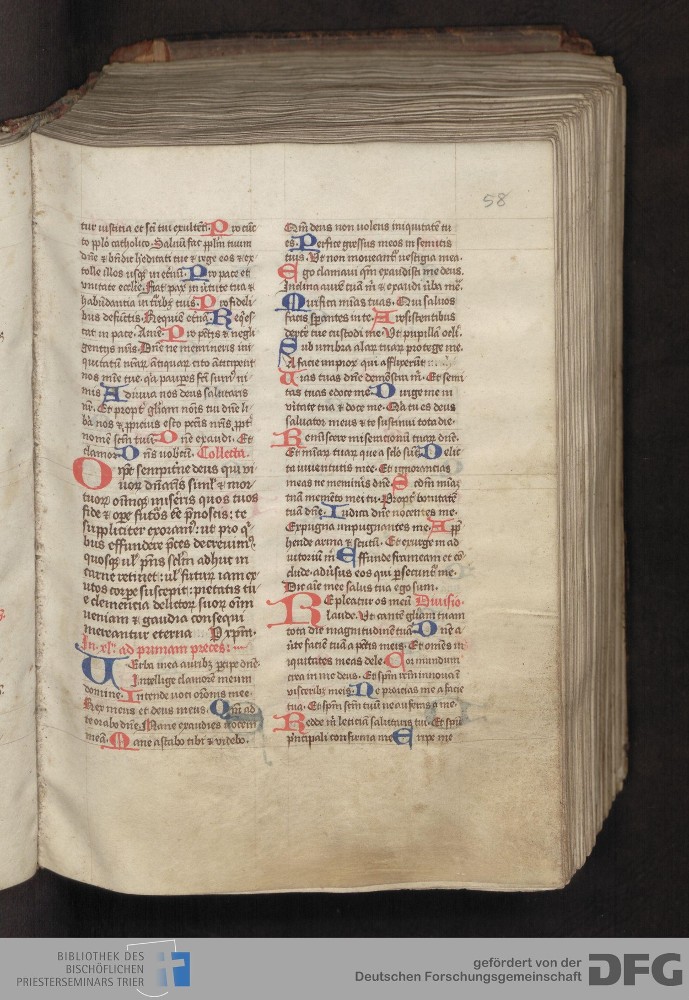 58
tur iusticia et sci tui exultent. Pro cunc
to pplo catholico. Saluu fac pplm tuum
dne & bndic hereditati tue & rege eos & ex
tolle illos usqꝫ in eternu. Pro pace et
vnitate ecclie. Fiat pax in uirtute tua &
habundantia in turribꝫ tuis. Pro fideli
bus defunctis. Requie eterna. Requies
cat in pace. Ame. Pro pctis & negli
gentiis nris. Dne ne memineris ini
quitatu nraꝝ antiquaꝝ cito anticipent
nos mie tue. qa paupes fci sumꝰ ni
mis Adiuua nos deus salutaris
nr. Et propt gliam nois tui dne li
ba nos & ppicius esto pctis nris. ppt
nome scm tuu. Dne exaudi. Et
clamor. Dns vobcu. Collecta.
Omps sempitne deus qui vi
uoꝝ dnaris siml & mor
tuoꝝ oimqꝫ miseris quos tuos
fide & ope futos ee pnoscis: te
suppliciter exoramꝰ: ut pro qi
bus effundere pces decreuimꝰ.
quosqꝫ ul pns sclm adhuc in
carne retinet: ul futuꝝ iam ex
utos corpe suscepit: pietatis tu
e clementia delictoꝝ suoꝝ oim
ueniam & gaudia consequi
mereantur eterna P xpm.
In xl. ad primam preces:
Verba mea auribꝫ pcipe dne.
Intellige clamore meum
domine. Intende voci oronis mee
Rex meus et deus meus. Qm ad
te orabo dne. Mane exaudies uocem
mea. Mane astabo tibi & videbo.
Qm deus non volens iniquitate tu
es. Perfice gressus meos in semitis
tuis. Vt non moueant vestigia mea.
Ego clamaui qm exaudisti me deus.
Inclina aure tua m & exaudi uba me.
Mirifica mias tuas. Qui saluos
facis sperantes in te. A resistentibus
dextre tue custodi me. Vt pupilla oclī.
Sub umbra alaꝝ tuaꝝ protege me.
A facie impioꝝ qui afflixerut
Uias tuas dne demostra m. Et semi
tas tuas edoce me. Dirige me in
vitate tua & doce me. Qia tu es deus
saluator meus & te sustinui tota die.
Reminiscere miserationu tuaꝝ dne.
Et miaꝝ tuaꝝ que a sclo sut. Delic
ta iuuentutis mee. Et ignorancias
meas ne memineris dne. Scdm mia
tua memeto mei tu. Propt bonitate
tua dne. Iudica dne nocentes me.
Expugna impugnantes me. App
hende arma & scutu. Et exurge in ad
iutoriu m. Effunde frameam et co
clude. aduersus eos qui psecunt me.
Dic aie mee salus tua ego sum.
Repleatur os meu Diuisio.
laude. Vt cante gliam tuam
tota die magnitudine tua. Dne a
uerte facie tua a pctis meis. Et omes in
iquitates meas dele. Cor mundum
crea in me deus. Et spm rcm innoua i
visceribꝫ meis. Ne proicias me a facie
tua. Et spm scm tuu ne auferas a me.
Redde m leticia salutaris tui. Et spu
pncipali confirma me. Eripe me
BIBLIOTHEK DES
BISCHÖFLICHEN
PRIESTERSEMINARS TRIER
gefördert von der
Deutschen Forschungsgemeinschaft
DFG